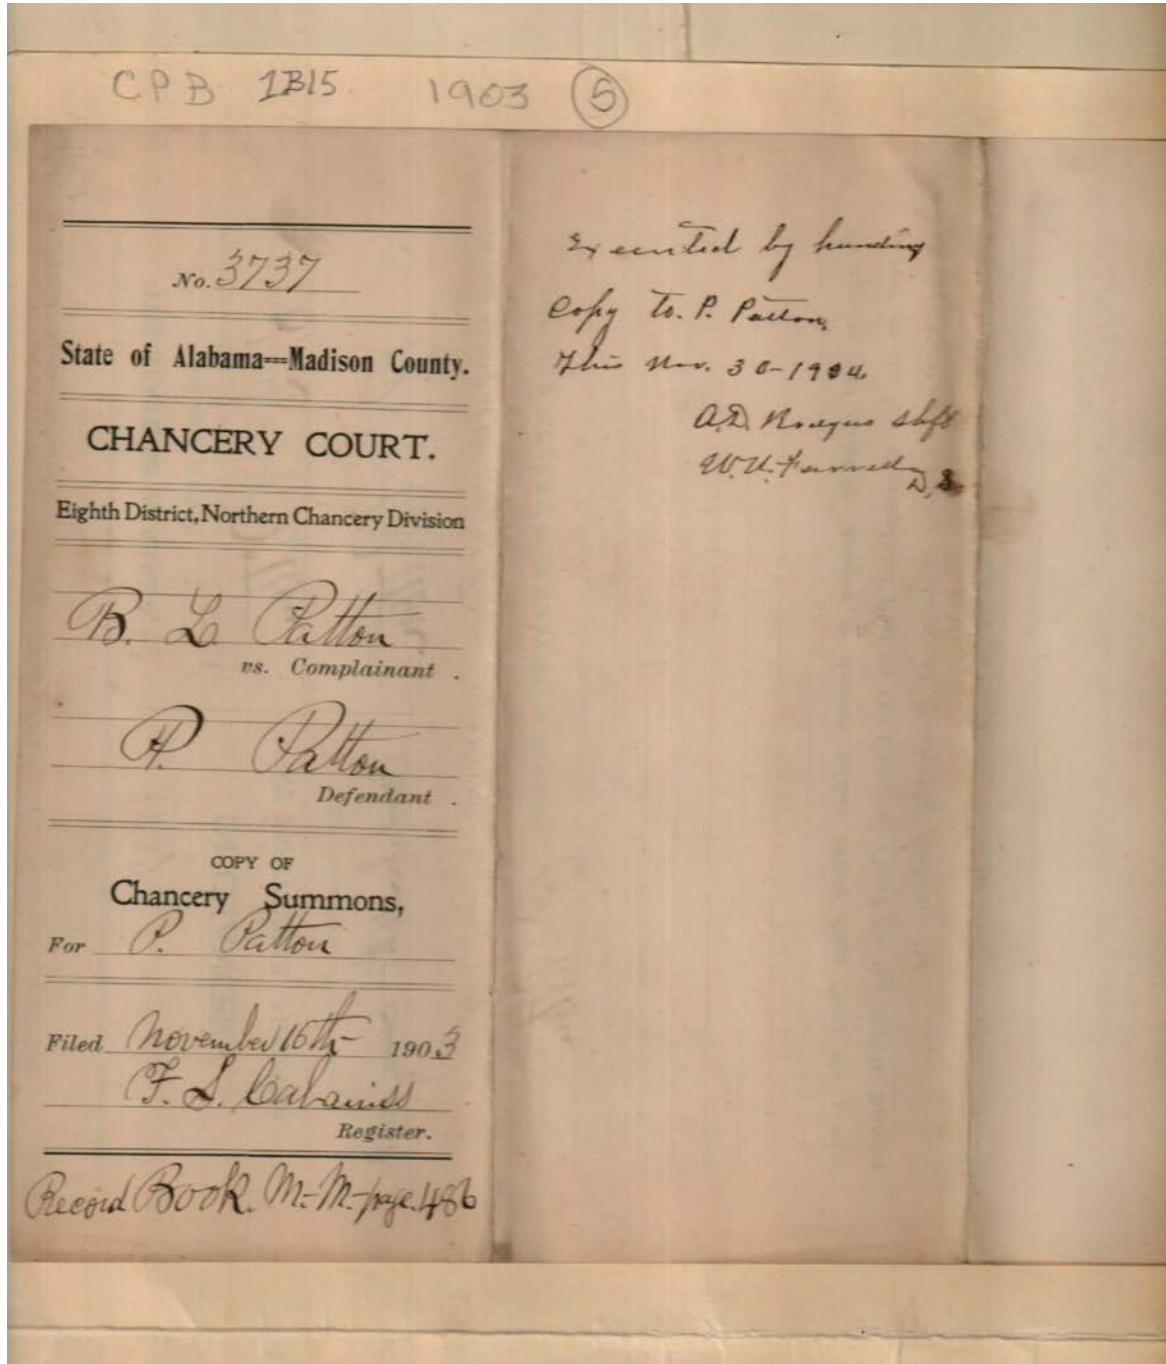 CPB 1B15 1903 5
No. 3737
State of Alabama---Madison County.
CHANCERY COURT.
Eighth District, Northern Chancery Division
B. L Patton
vs. Complainant .
P. Patton
Defendant .
COPY OF
Chancery Summons,
For P. Patton
Filed November 16th 1903
F. S. Cabaniss
Register.
Record Book. M.-M.-page.486
Executed by handing
Copy to. P. Patton,
This Nov. 30-1904.
A.D. Rodgers Shff
W.U. D.S.